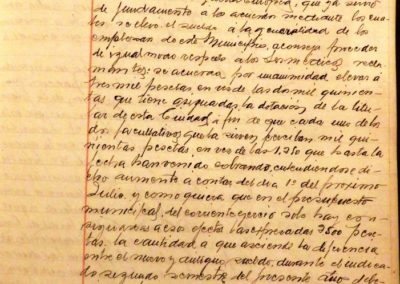 de fundamento a los acuerdos mediante los cua-
les se elevó el sueldo a la generalidad de los
empleados de este Municipio, aconseja proceder
de igual modo respecto a los médicos
se acuerda por unanimidad elevar a
tres mil pesetas, en vez de las dos mil quinien-
tas que tiene asignadas, la dotación de la titu-
lar de esta Ciudad, a fin de que cada uno de los
dos facultativos que la sirven perciban mil qui-
nientas pesetas, en vez de las 1.250 que hasta la
fecha han venido cobrando, entendiéndose di-
cho aumento a contar del día 1º del próximo
Julio, y como quiera que en el presupuesto
municipal del corriente ejercicio solo hay con-
signadas a ese efecto las expresadas 2500 pese-
tas, la cantidad a que asciende la diferencia
entre el nuevo y antiguo sueldo, durante el indica-
do segundo semestre del presente año, debe